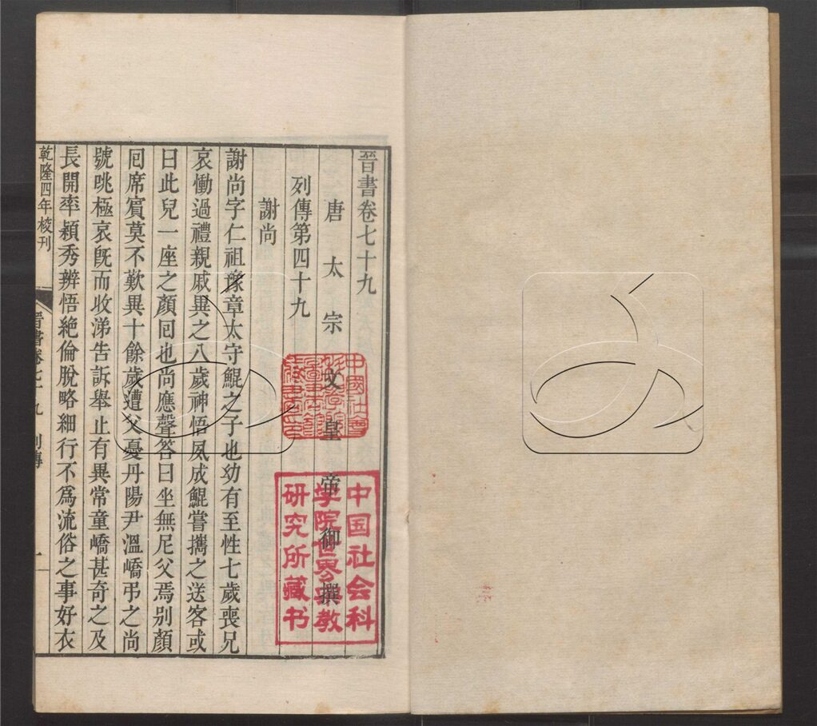 晉書卷七十九
唐太宗文皇帝御撰
列傳第四十九
謝尚
謝尚字仁祖豫章太守鯤之子也幼有至性七歲喪兄
哀慟過禮親戚異之八歲神悟夙成鯤嘗攜之送客或
曰此兒一座之顏回也尚應聲答曰坐無尼父焉别顏
回席賓莫不歎異十餘歲遭父憂丹陽尹溫嶠弔之尚
號咷極哀旣而收涕告訴舉止有異常童嶠甚奇之及
長開率穎秀辨悟絶倫脫略細行不爲流俗之事好衣
乾隆四年校刊
晉書卷七十九 列傳
一
中国社会科
学院世界宗教
研究所藏书